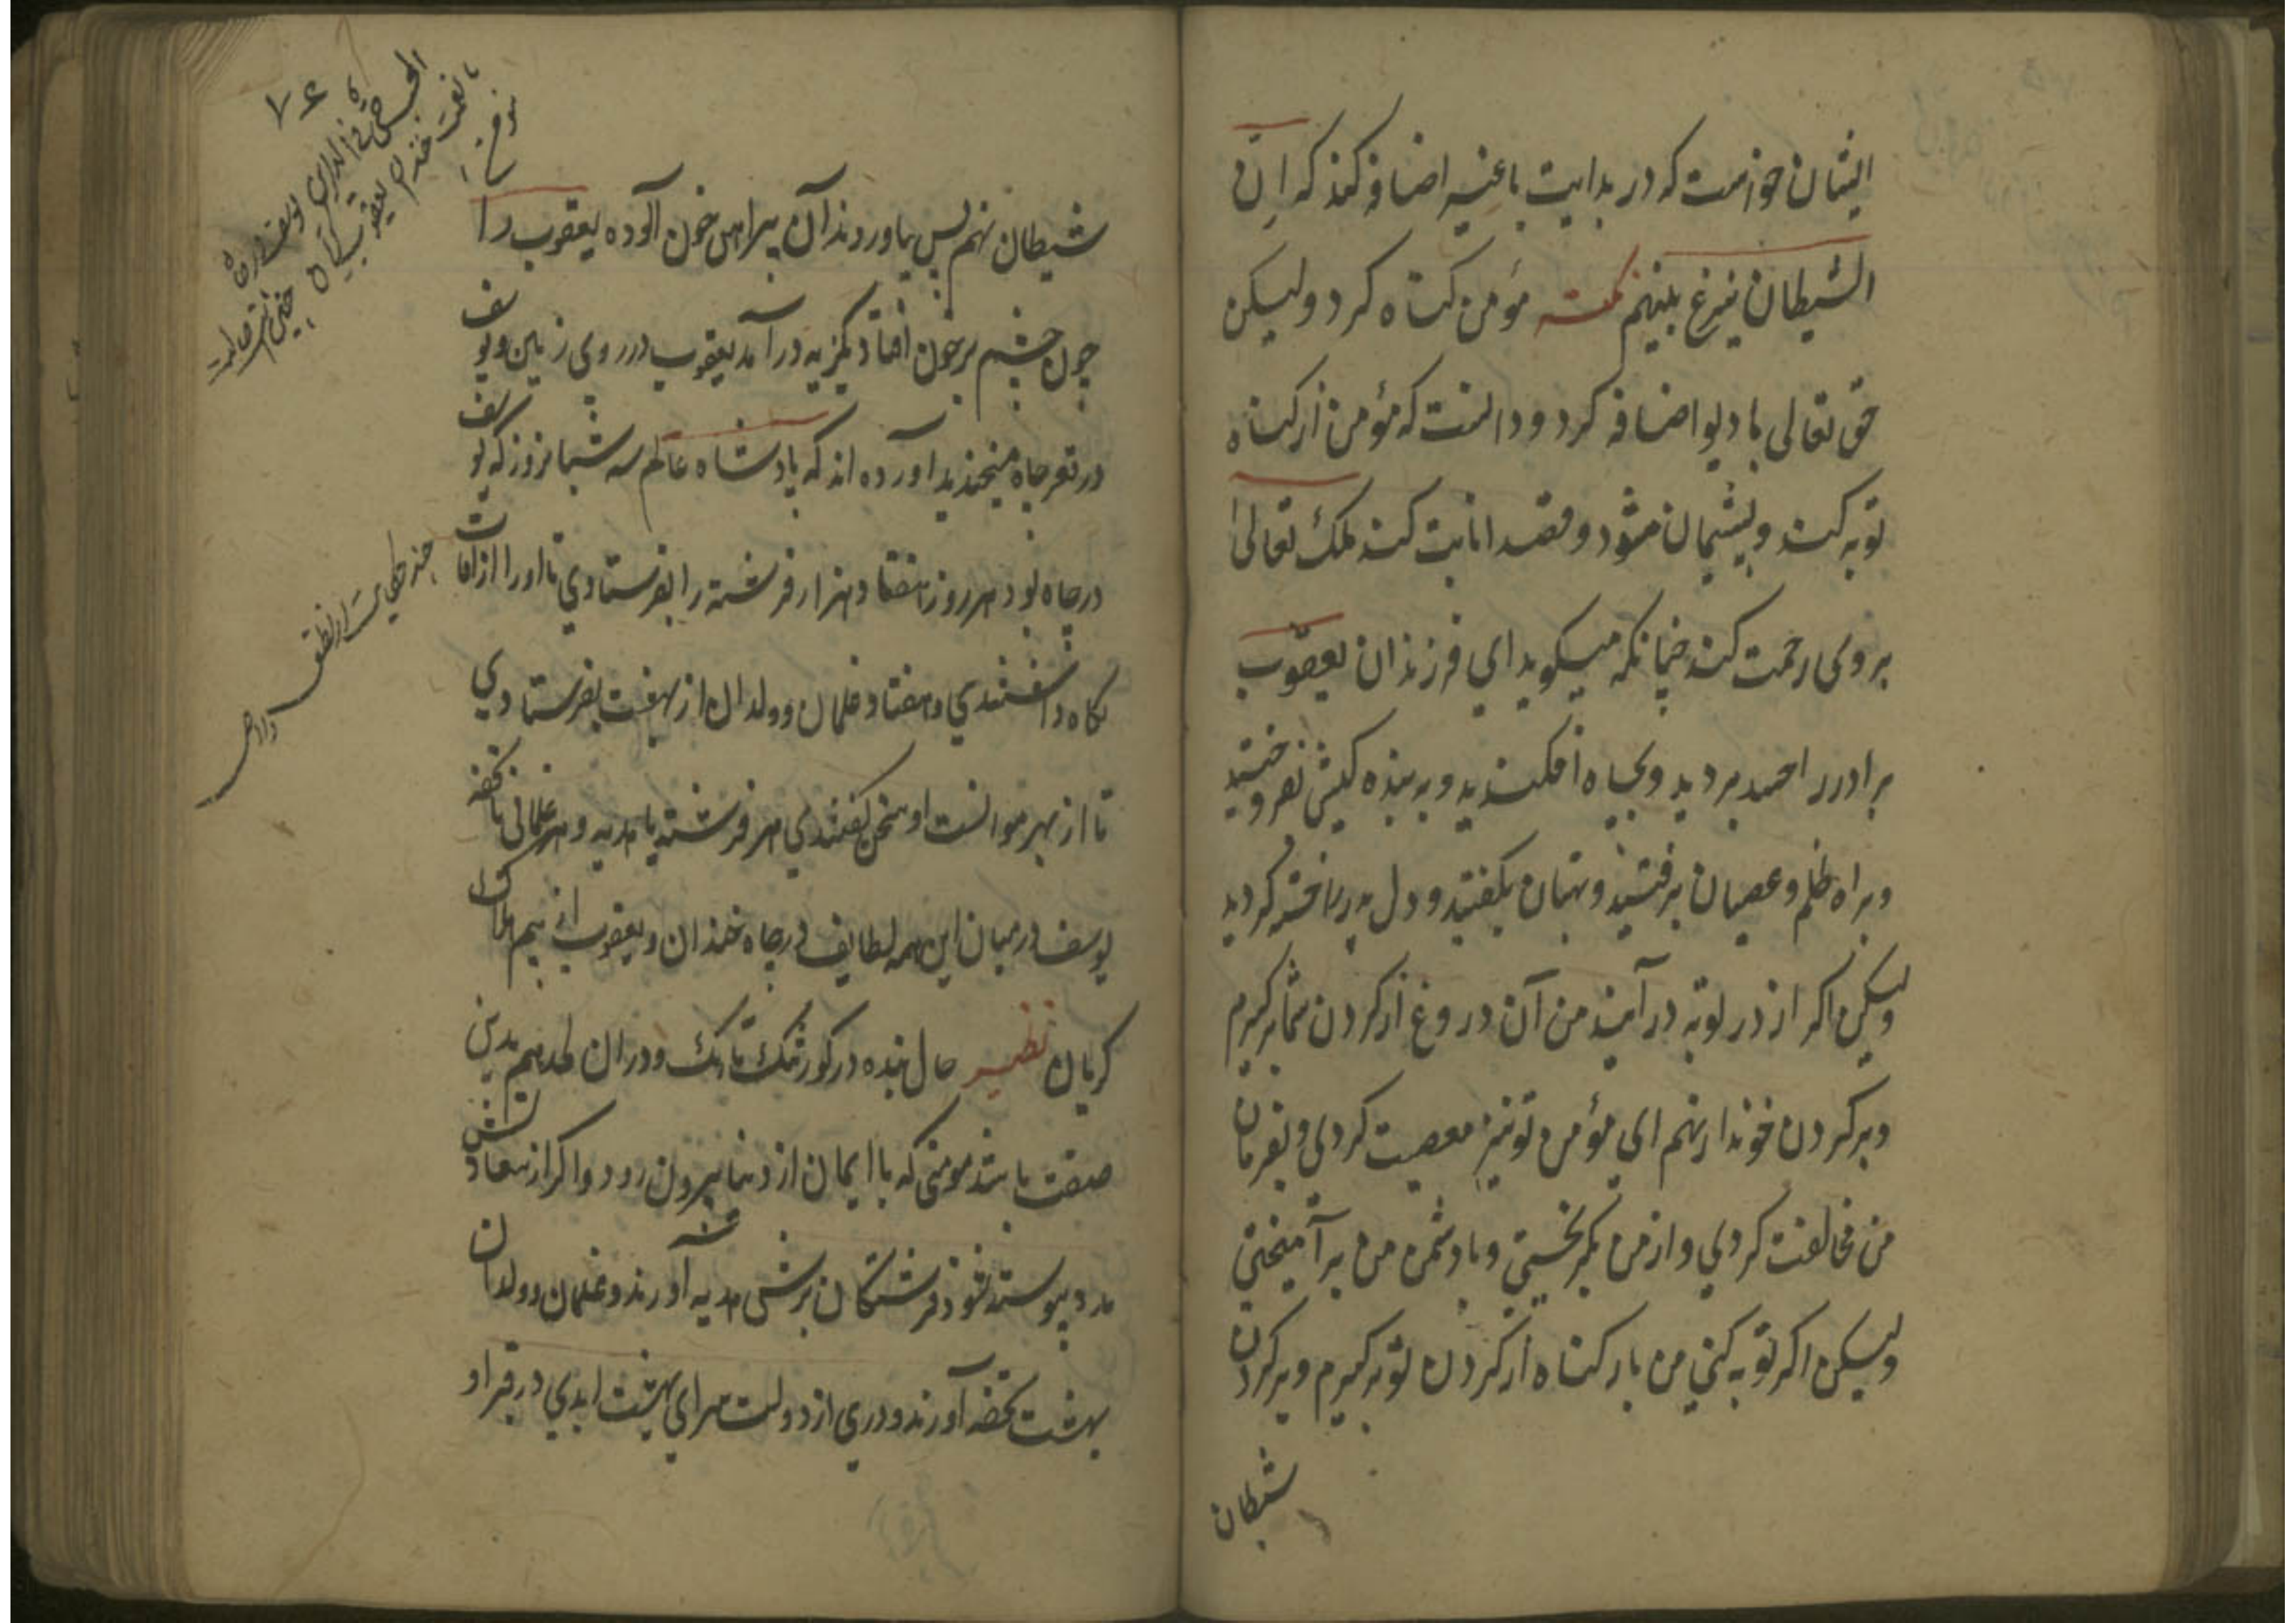 ایشان خواست که در بدایت باغیه اضافه کند که انّ
الشیطان ینزغ بینهم نکته مؤمن کناه کرد ولیکن
حق تعالی با دیو اضافه کرد و دانست که مؤمن از کناه
توبه کند و پشیمان شود و قصد انابت کند ملک تعالی
بر وی رحمت کند چنانکه میکوید ای فرزندان یعقوب
برادر را بردید و بچاه افکندید و به بنده کیش بفروختید
و براه ظلم و عصیان برفتید و بهتان بکفتید و دل پدر کردید
ولیکن اکر از در توبه در آیید من آن دروغ از کردن شما برکیرم
و بر کردن نهم ای مؤمن تو نیز معصیت کردی و بفرمان
من مخالفت کردی و از من بکریختی و با دشمن من برآمیختی
ولیکن اکر توبه کنی من بار کناه از کردن تو برکیرم و بر کردن
شیطان
۷۶
شیطان نهم پس بیاوردند آن پیراهن خون آلوده یعقوب را
چون چشم بر خون افتاد بکریه در آمد یعقوب در روی زمین و یوسف
در قعر چاه میخندید آورده اند که پادشاه عالم سه شبانروز که یوسف
در چاه بود هر روز هفتاد هزار فرشته را بفرستادی تا او را از آفات
نکاه داشتندی و هفتاد غلمان و ولدان از بهشت بفرستادی
تا از بهر موانست او سخن کفتندی هر فرشته با هدیه و هر غلمانی با تحفه
یوسف در میان این همه لطایف در چاه خندان و یعقوب از بیم هلاک او
کریان نظیر حال بنده در کور تنک تاریک و در آن لحد هم بدین
صفت باشد مومنی که با ایمان از دنیا بیرون رود و اکر از سعادتش
مدد پیوسته شود فرشتکان برش هدیه آورند و غلمان و ولدان
بهشت تحفه آورند و دری از دولت سرای بهشت ابدی در قبر او